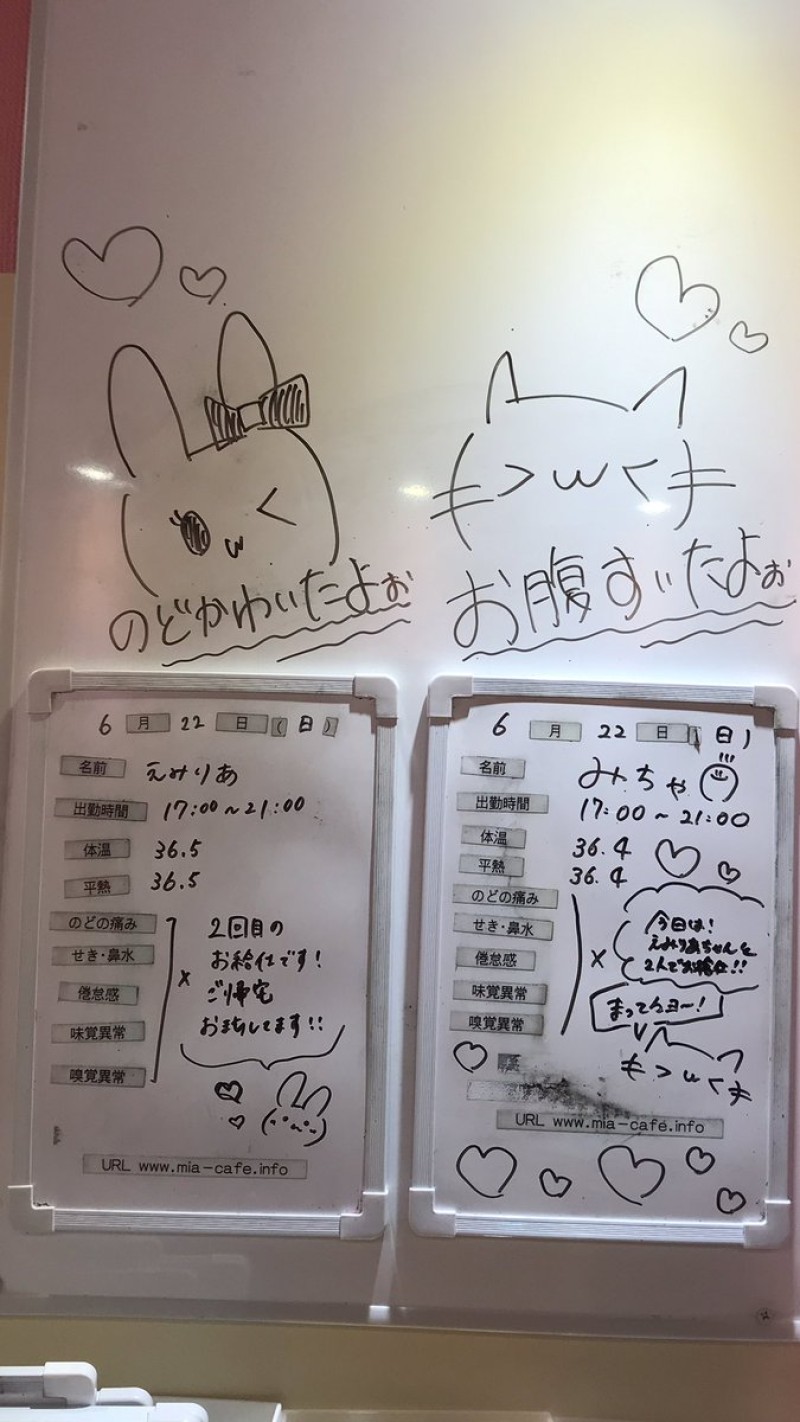 のどかわいたよぉ
お腹すいたよぉ
6月22日(日)
名前 えみりあ
出勤時間 17:00~21:00
体温 36.5
平熱 36.5
のどの痛み
せき・鼻水
倦怠感
味覚異常
嗅覚異常
×
2回目の
お給仕です!
ご帰宅
お待ちしてます!!
URL www.mia-cafe.info
6月22日(日)
名前 みちゃ
出勤時間 17:00~21:00
体温 36.4
平熱 36.4
のどの痛み
せき・鼻水
倦怠感
味覚異常
嗅覚異常
×
今日は!
えみりあちゃんと
2人でお給仕!!
まってるヨー!
URL www.mia-cafe.info